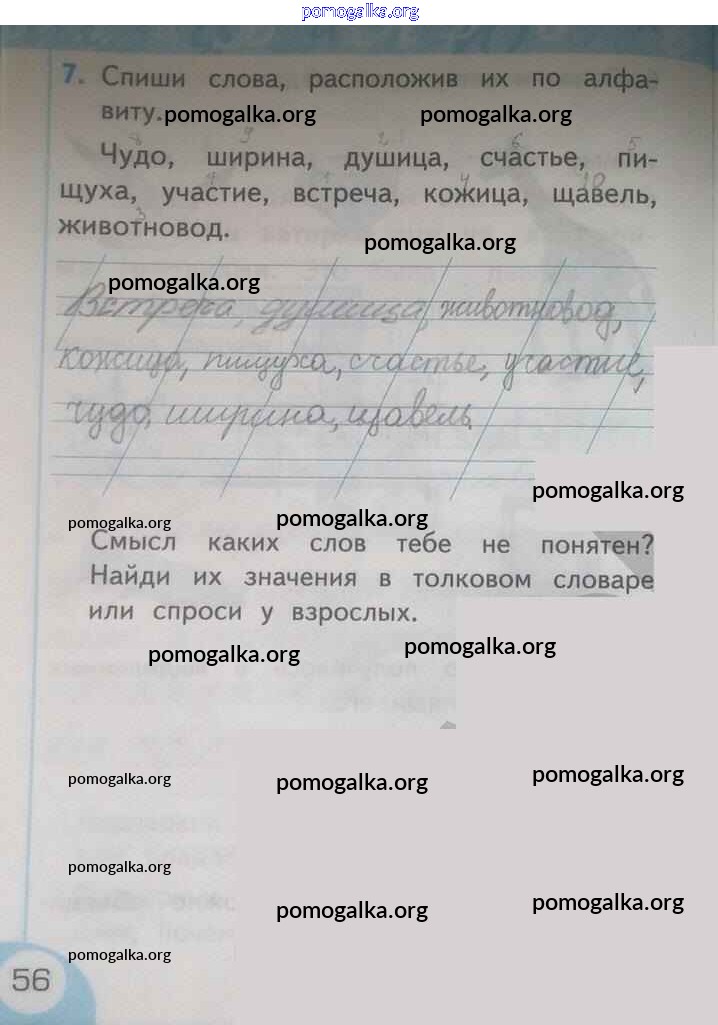 pomogalka.org
7. Спиши слова, расположив их по алфа-
виту. pomogalka.org pomogalka.org
8 9 2 6 5
Чудо, ширина, душица, счастье, пи-
7 1 4 10
щуха, участие, встреча, кожица, щавель,
3
животновод.
pomogalka.org
pomogalka.org
Встреча, душица, животновод,
кожица, пищуха, счастье, участие,
чудо, ширина, щавель.
pomogalka.org
pomogalka.org pomogalka.org
Смысл каких слов тебе не понятен?
Найди их значения в толковом словаре
или спроси у взрослых.
pomogalka.org pomogalka.org
pomogalka.org pomogalka.org pomogalka.org
pomogalka.org
pomogalka.org pomogalka.org
pomogalka.org
56